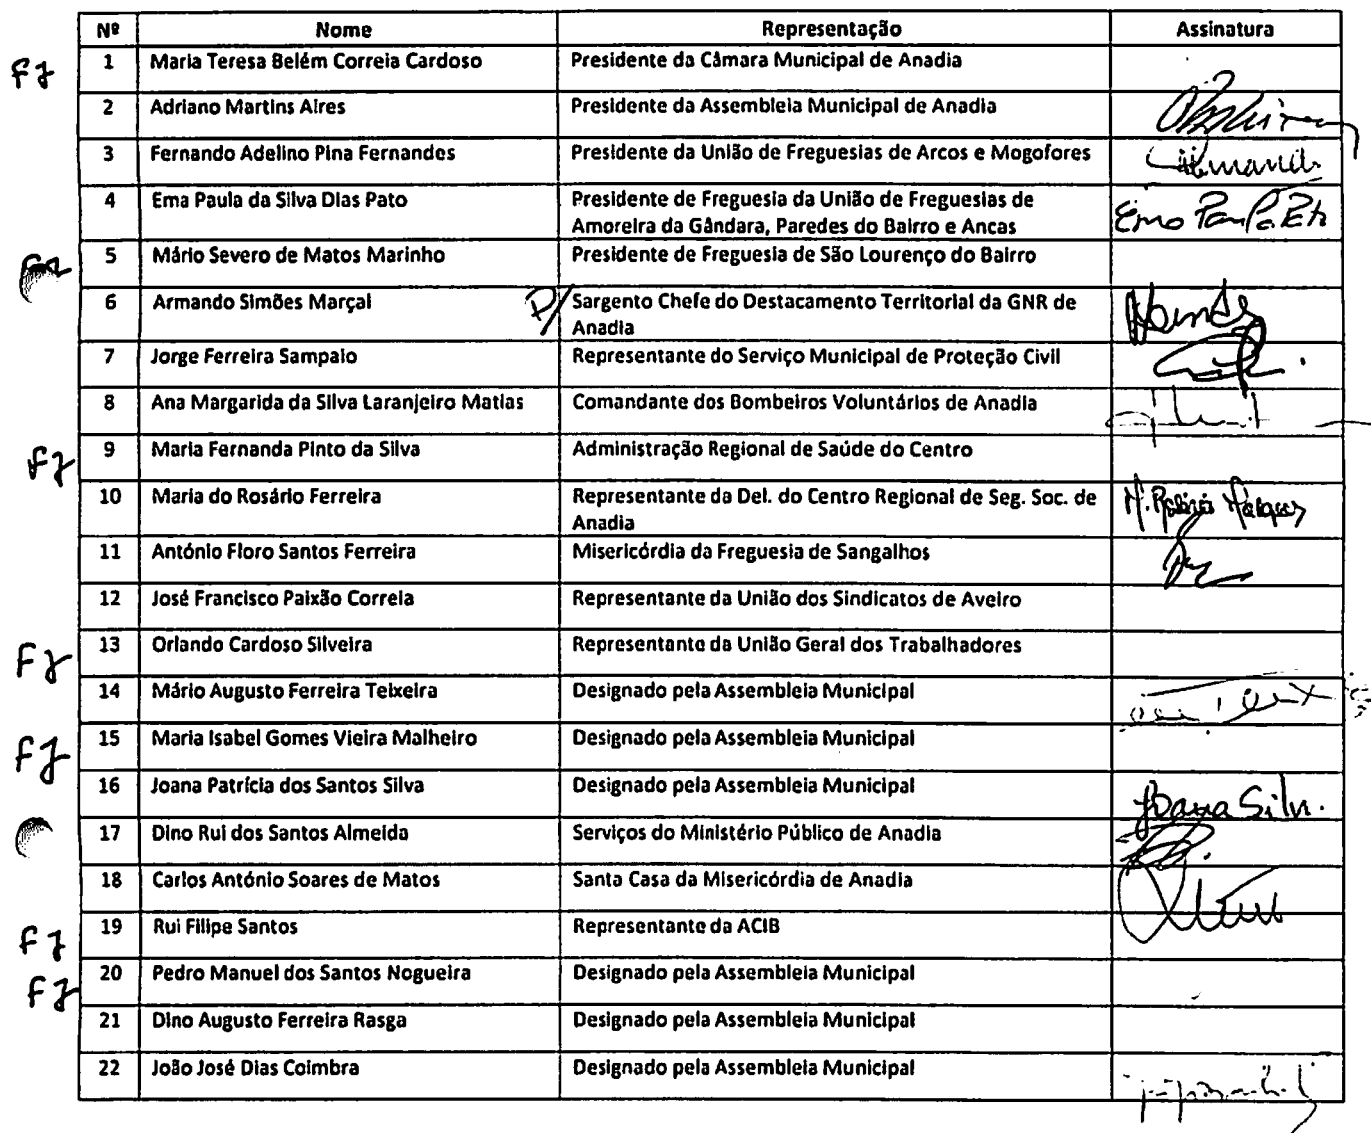 Nº Nome Representação Assinatura
FJ 1 Maria Teresa Belém Correia Cardoso Presidente da Câmara Municipal de Anadia
2 Adriano Martins Aires Presidente da Assembleia Municipal de Anadia
3 Fernando Adelino Pina Fernandes Presidente da União de Freguesias de Arcos e Mogofores
4 Ema Paula da Silva Dias Pato Presidente de Freguesia da União de Freguesias de
Amoreira da Gândara, Paredes do Bairro e Ancas Ema Paula Pato
5 Mário Severo de Matos Marinho Presidente de Freguesia de São Lourenço do Bairro
6 Armando Simões Marçal P/ Sargento Chefe do Destacamento Territorial da GNR de
Anadia
7 Jorge Ferreira Sampaio Representante do Serviço Municipal de Proteção Civil
8 Ana Margarida da Silva Laranjeiro Matias Comandante dos Bombeiros Voluntários de Anadia
FJ 9 Maria Fernanda Pinto da Silva Administração Regional de Saúde do Centro
10 Maria do Rosário Ferreira Representante da Del. do Centro Regional de Seg. Soc. de
Anadia
11 António Floro Santos Ferreira Misericórdia da Freguesia de Sangalhos
12 José Francisco Paixão Correia Representante da União dos Sindicatos de Aveiro
FJ 13 Orlando Cardoso Silveira Representante da União Geral dos Trabalhadores
14 Mário Augusto Ferreira Teixeira Designado pela Assembleia Municipal
FJ 15 Maria Isabel Gomes Vieira Malheiro Designado pela Assembleia Municipal
16 Joana Patrícia dos Santos Silva Designado pela Assembleia Municipal Joana Silva
17 Dino Rui dos Santos Almeida Serviços do Ministério Público de Anadia
18 Carlos António Soares de Matos Santa Casa da Misericórdia de Anadia
FJ 19 Rui Filipe Santos Representante da ACIB
FJ 20 Pedro Manuel dos Santos Nogueira Designado pela Assembleia Municipal
21 Dino Augusto Ferreira Rasga Designado pela Assembleia Municipal
22 João José Dias Coimbra Designado pela Assembleia Municipal